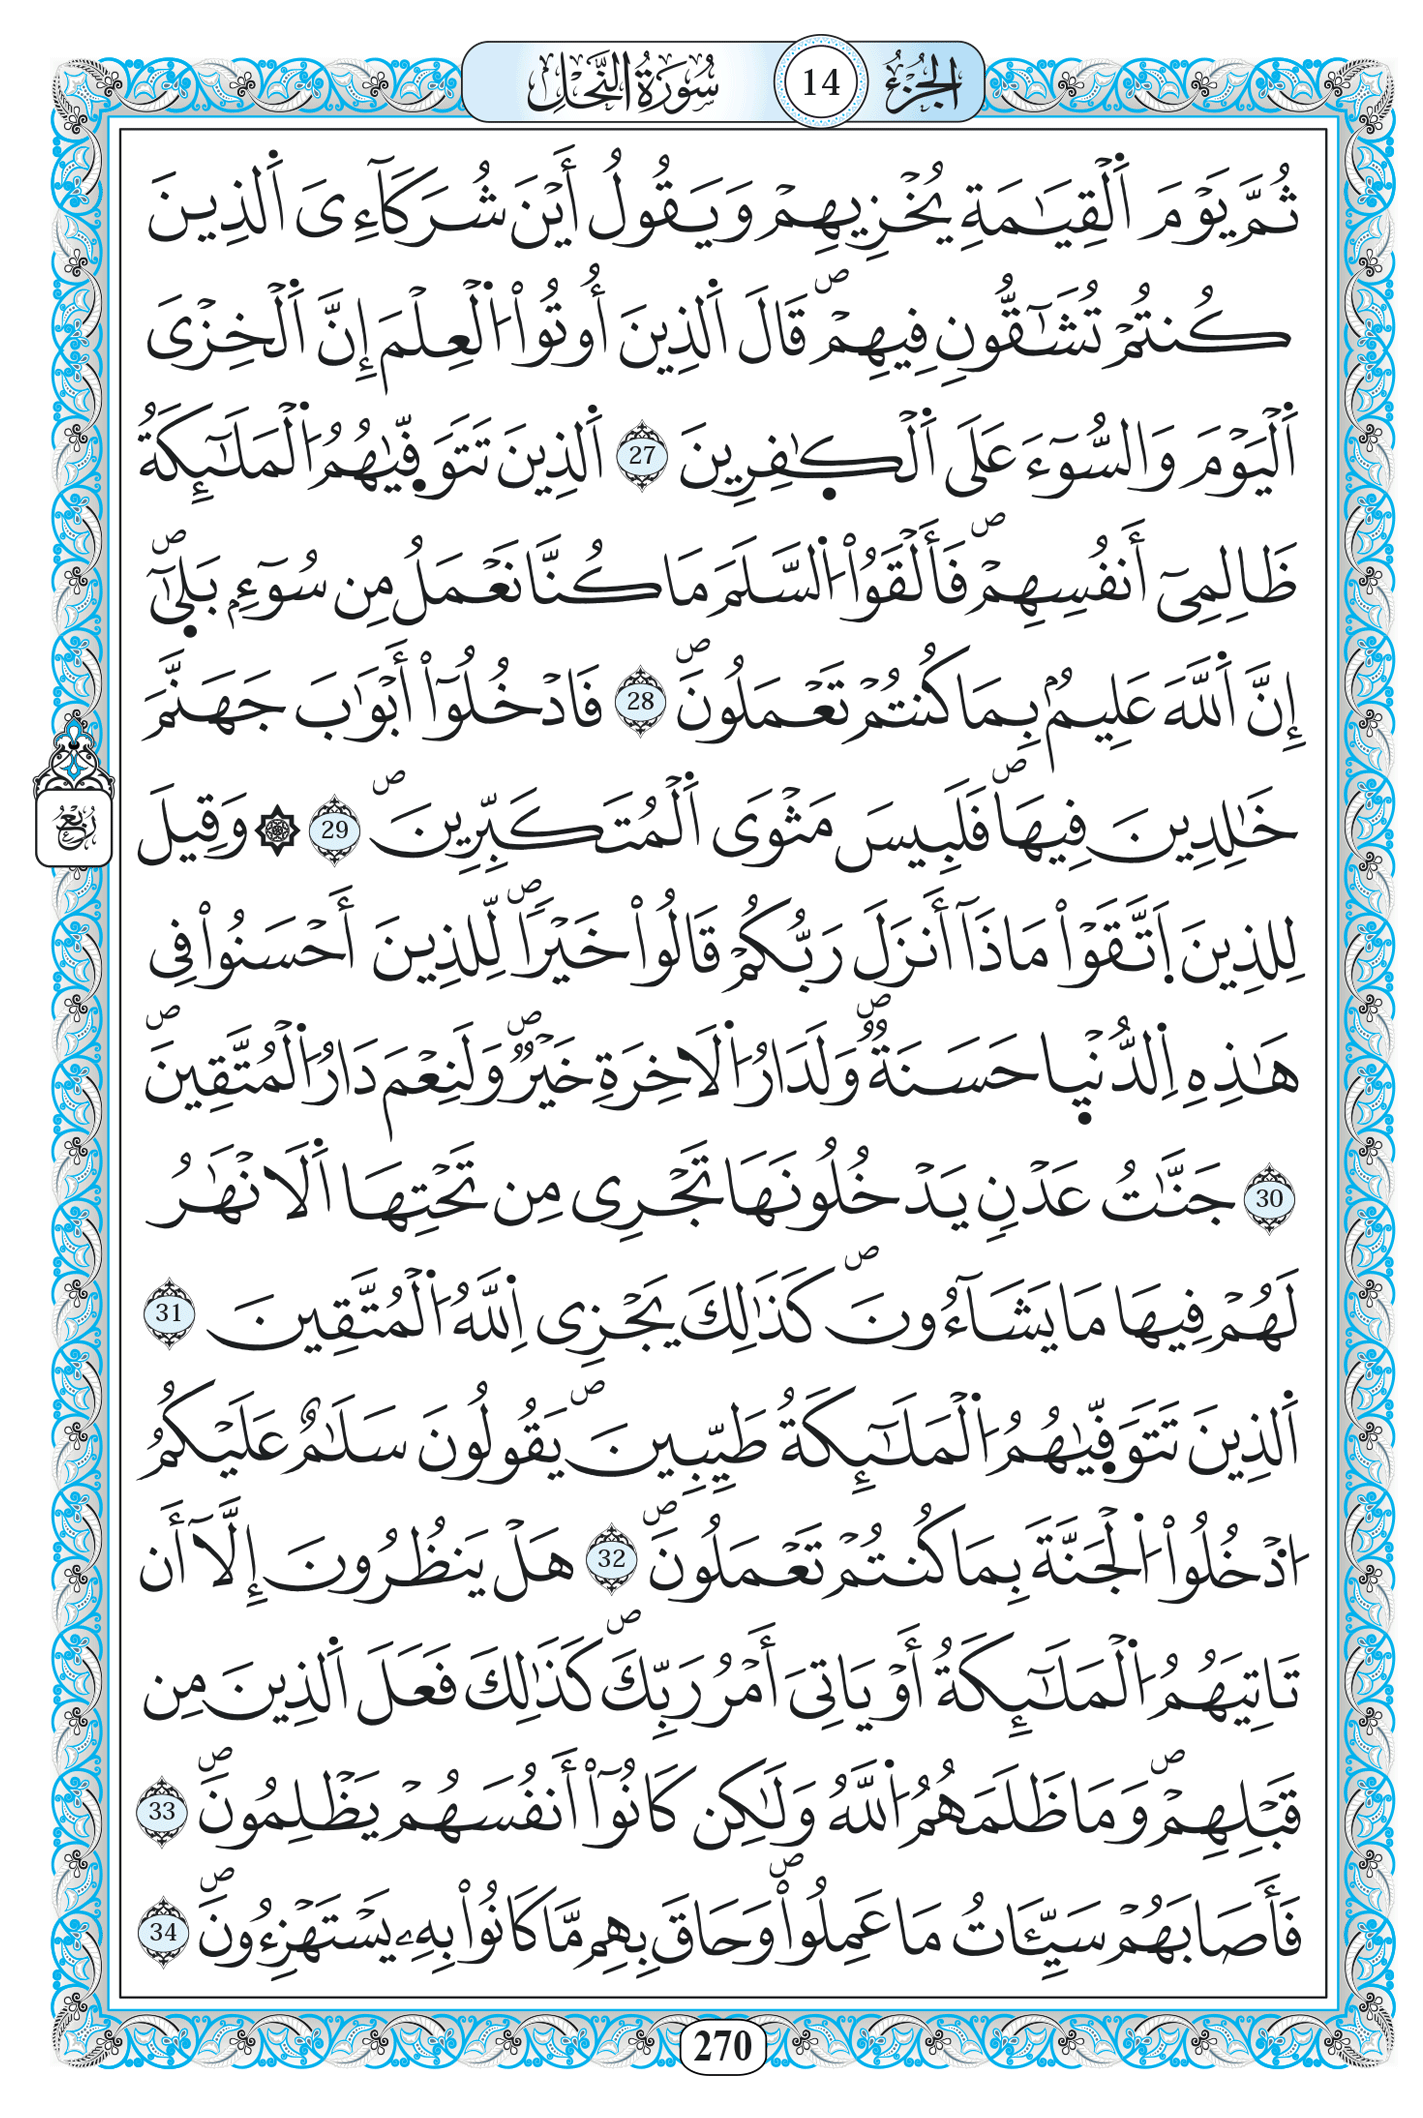 الجزء 14 سورة النحل
ثُمَّ يَوْمَ اَ۬لْقِيَٰمَةِ يُخْزِيهِمْ وَيَقُولُ أَيْنَ شُرَكَآءِىَ اَ۬لذِينَ
كُنتُمْ تُشَٰٓقُّونِ فِيهِمْۖ قَالَ اَ۬لذِينَ أُوتُواْ اُ۬لْعِلْمَ إِنَّ اَ۬لْخِزْىَ
اَ۬لْيَوْمَ وَالسُّوٓءَ عَلَى اَ۬لْكٰ۪فِرِينَ 27 اَ۬لذِينَ تَتَوَفّ۪يٰهُمُ اُ۬لْمَلَٰٓئِكَةُ
ظَالِمِىٓ أَنفُسِهِمْۖ فَأَلْقَوُاْ اُ۬لسَّلَمَ مَا كُنَّا نَعْمَلُ مِن سُوٓءِۢ بَل۪يٰٓۖ
إِنَّ اَ۬للَّهَ عَلِيمُۢ بِمَا كُنتُمْ تَعْمَلُونَۖ 28 فَادْخُلُوٓاْ أَبْوَٰبَ جَهَنَّمَ
خَٰلِدِينَ فِيهَاۖ فَلَبِيسَ مَثْوَى اَ۬لْمُتَكَبِّرِينَۖ 29 ۞ وَقِيلَ
لِلذِينَ اَ۪تَّقَوْاْ مَاذَآ أَنزَلَ رَبُّكُمْ قَالُواْ خَيْراٗۖ لِّلذِينَ أَحْسَنُواْ فِى
هَٰذِهِ اِ۬لدُّنْي۪ا حَسَنَةٞۖ وَلَدَارُ اُ۬لَاخِرَةِ خَيْرٞۖ وَلَنِعْمَ دَارُ اُ۬لْمُتَّقِينَۖ
30 جَنَّٰتُ عَدْنٖ يَدْخُلُونَهَا تَجْرِى مِن تَحْتِهَا اَ۬لَانْهَٰرُ
لَهُمْ فِيهَا مَا يَشَآءُونَۖ كَذَٰلِكَ يَجْزِى اِ۬للَّهُ اُ۬لْمُتَّقِينَ 31
اَ۬لذِينَ تَتَوَفّ۪يٰهُمُ اُ۬لْمَلَٰٓئِكَةُ طَيِّبِينَۖ يَقُولُونَ سَلَٰمٌ عَلَيْكُمُ
اُ۟دْخُلُواْ اُ۬لْجَنَّةَ بِمَا كُنتُمْ تَعْمَلُونَۖ 32 هَلْ يَنظُرُونَ إِلَّآ أَن
تَاتِيَهُمُ اُ۬لْمَلَٰٓئِكَةُ أَوْ يَاتِىَ أَمْرُ رَبِّكَۖ كَذَٰلِكَ فَعَلَ اَ۬لذِينَ مِن
قَبْلِهِمْۖ وَمَا ظَلَمَهُمُ اُ۬للَّهُ وَلَٰكِن كَانُوٓاْ أَنفُسَهُمْ يَظْلِمُونَۖ 33
فَأَصَابَهُمْ سَيِّـَٔاتُ مَا عَمِلُواْۖ وَحَاقَ بِهِم مَّا كَانُواْ بِهِۦ يَسْتَهْزِءُونَۖ 34
رُبُعْ
270